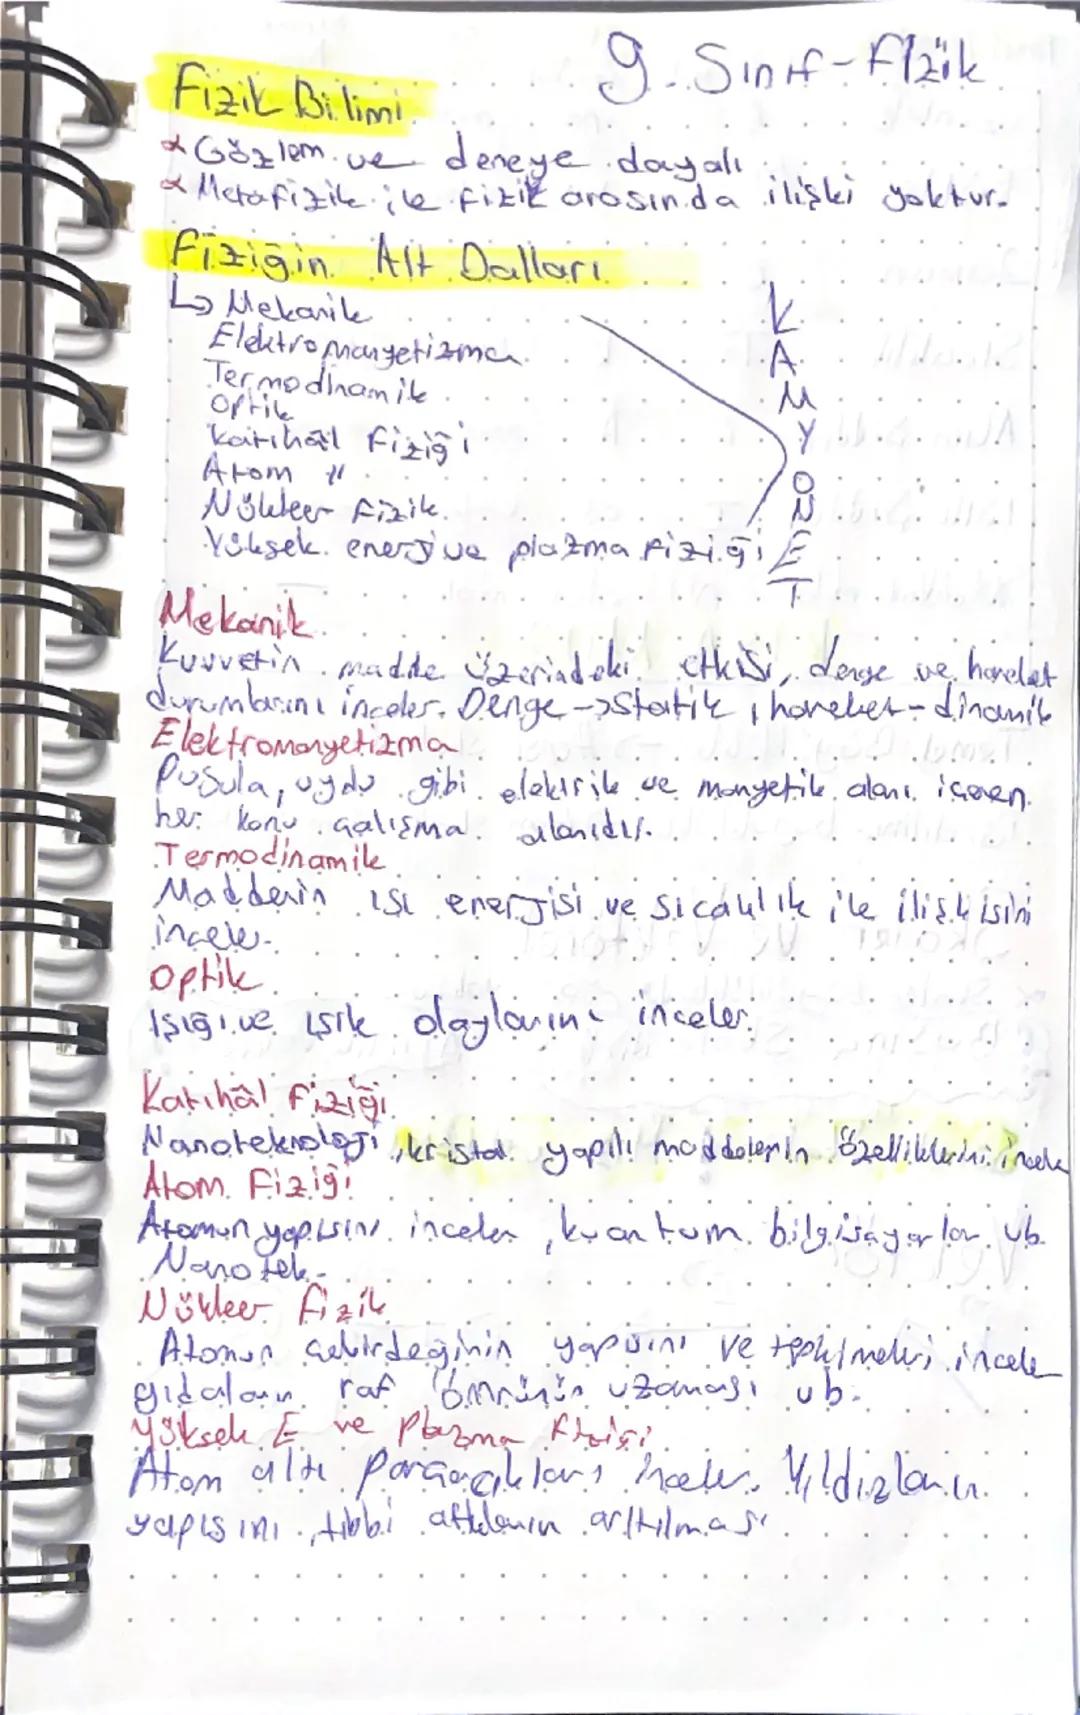 9. Sınıf - Fizik
Fizik Bilimi
α Gözlem ve deneye dayalı
α Metafizik ile fizik arasında ilişki yoktur.
Fiziğin Alt Dalları
↳ Mekanik
Elektromanyetizma
Termodinamik
Optik
Katıhâl Fiziği
Atom "
Nükleer Fizik
Yüksek enerji ve plazma fiziği
K
A
M
Y
O
N
E
T
Mekanik
Kuvvetin madde üzerindeki etkisi, denge ve hareket
durumlarını inceler. Denge -> Statik, hareket - dinamik
Elektromanyetizma
Pusula, uydu gibi elektrik ve manyetik alanı içeren
her konu çalışma alanıdır.
Termodinamik
Maddenin ısı enerjisi ve sıcaklık ile ilişkisini
inceler.
Optik
Işığı ve ışık olaylarını inceler.
Katıhâl Fiziği
Nanoteknoloji, kristal yapılı maddelerin özelliklerini inceler
Atom Fiziği
Atomun yapısını inceler, kuantum bilgisayarlar vb.
Nanotek.
Nükleer Fizik
Atomun çekirdeğinin yapısını ve tepkimeleri inceler
gıdaların raf ömrünün uzaması vb.
Yüksek E ve Plazma Fiziği
Atom altı parçacıkları inceler. Yıldızların
yapısını, tıbbi atıkların arıtılması